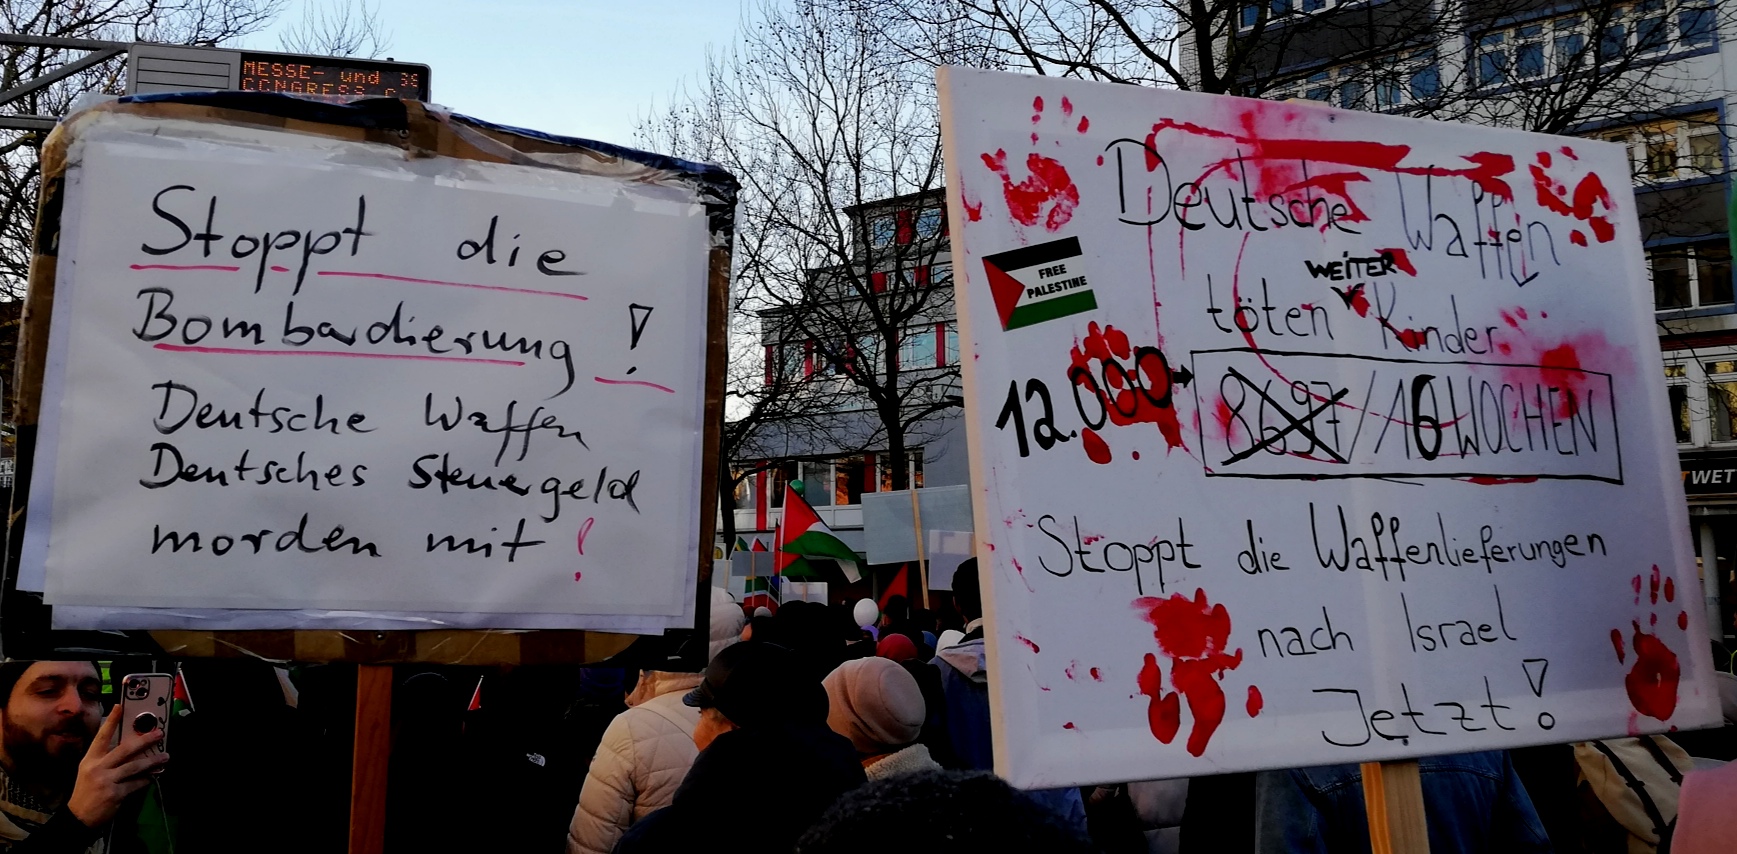 MESSE- und
CCNGRESS
Stoppt die
Bombardierung !
Deutsche Waffen
Deutsches Steuergeld
morden mit !
Deutsche Waffen
WEITER
töten Kinder
FREE
PALESTINE
12.000
8697 / 16 WOCHEN
Stoppt die Waffenlieferungen
nach Israel
Jetzt !
WET